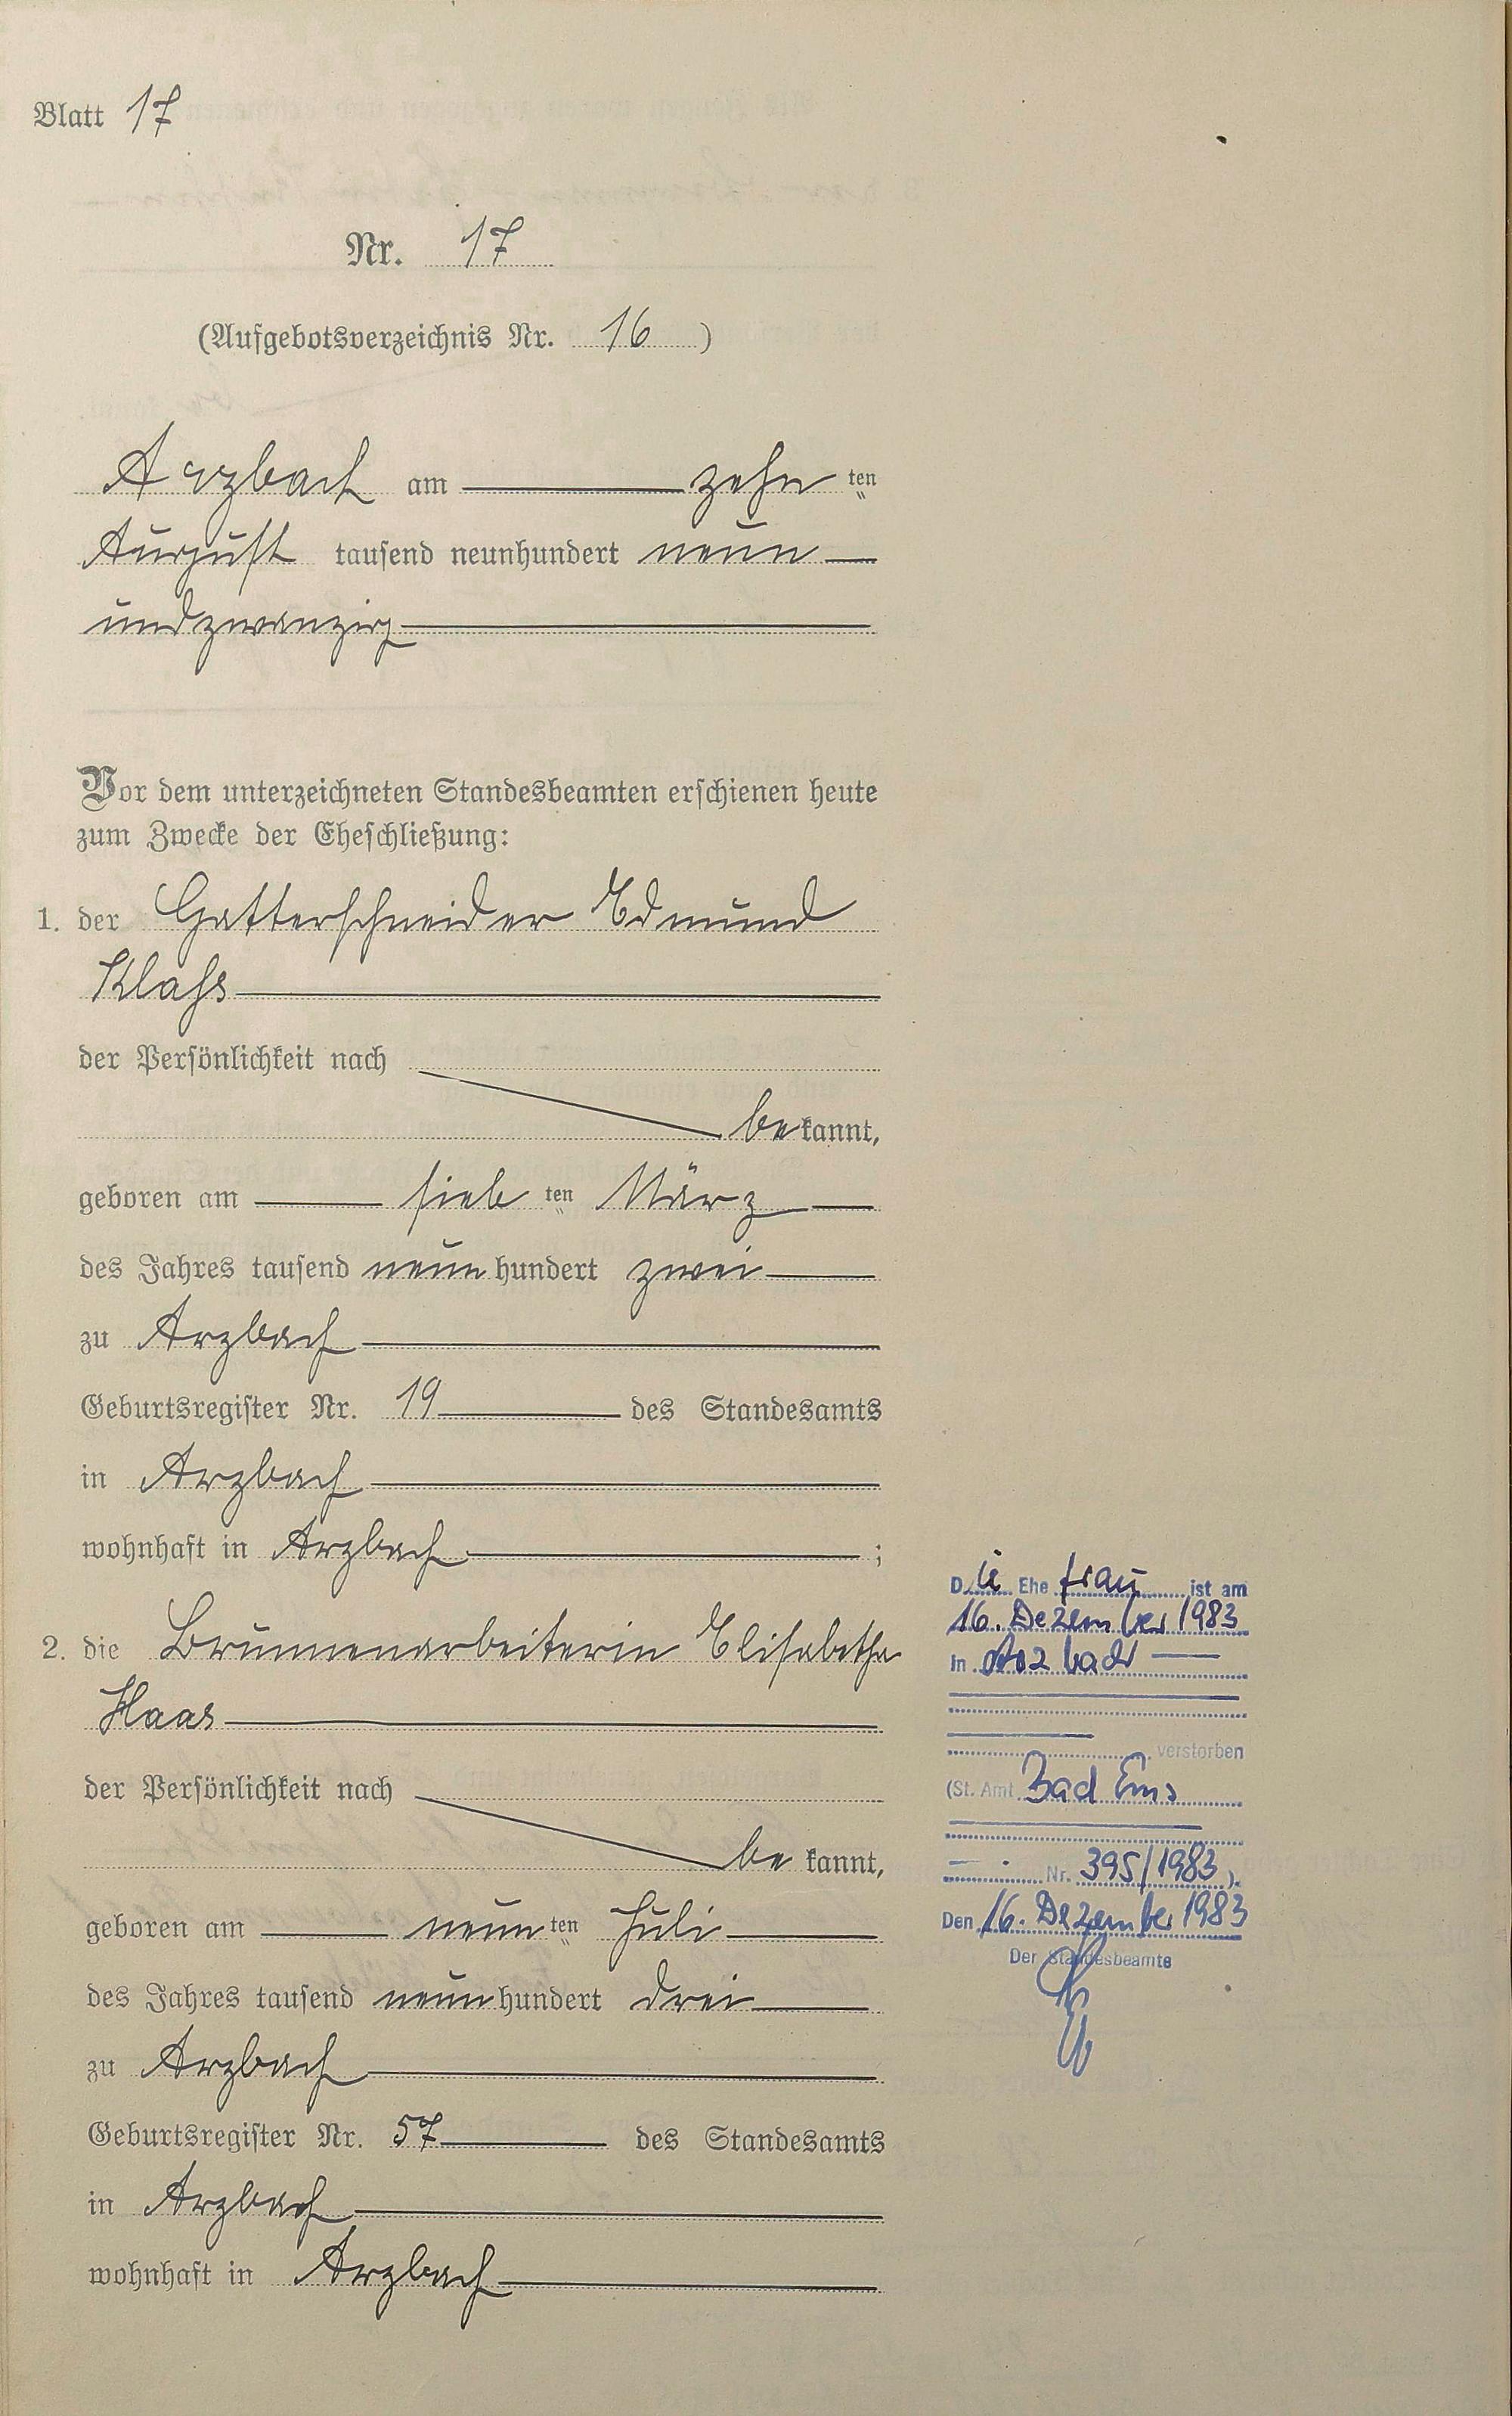 Blatt 17
Nr. 17
(Aufgebotsverzeichnis Nr. 16 )
Arzbach am zehn ten
August tausend neunhundert neun
undzwanzig
Vor dem unterzeichneten Standesbeamten erschienen heute
zum Zwecke der Eheschließung:
1. der Gatterschneider Edmund
Klaß
der Persönlichkeit nach
bekannt,
geboren am sieb ten März
des Jahres tausend neun hundert zwei
zu Arzbach
Geburtsregister Nr. 19 des Standesamts
in Arzbach
wohnhaft in Arzbach ;
2. die Brunnenarbeiterin Elisabetha
Haas
der Persönlichkeit nach
be kannt,
geboren am neun ten Juli
des Jahres tausend neun hundert drei
zu Arzbach
Geburtsregister Nr. 57 des Standesamts
in Arzbach
wohnhaft in Arzbach
Die Ehefrau ist am
16. Dezember 1983
in Arzbach
verstorben
(St. Amt Bad Ems
Nr. 395/1983 ).
Den 16. Dezember 1983
Der Standesbeamte